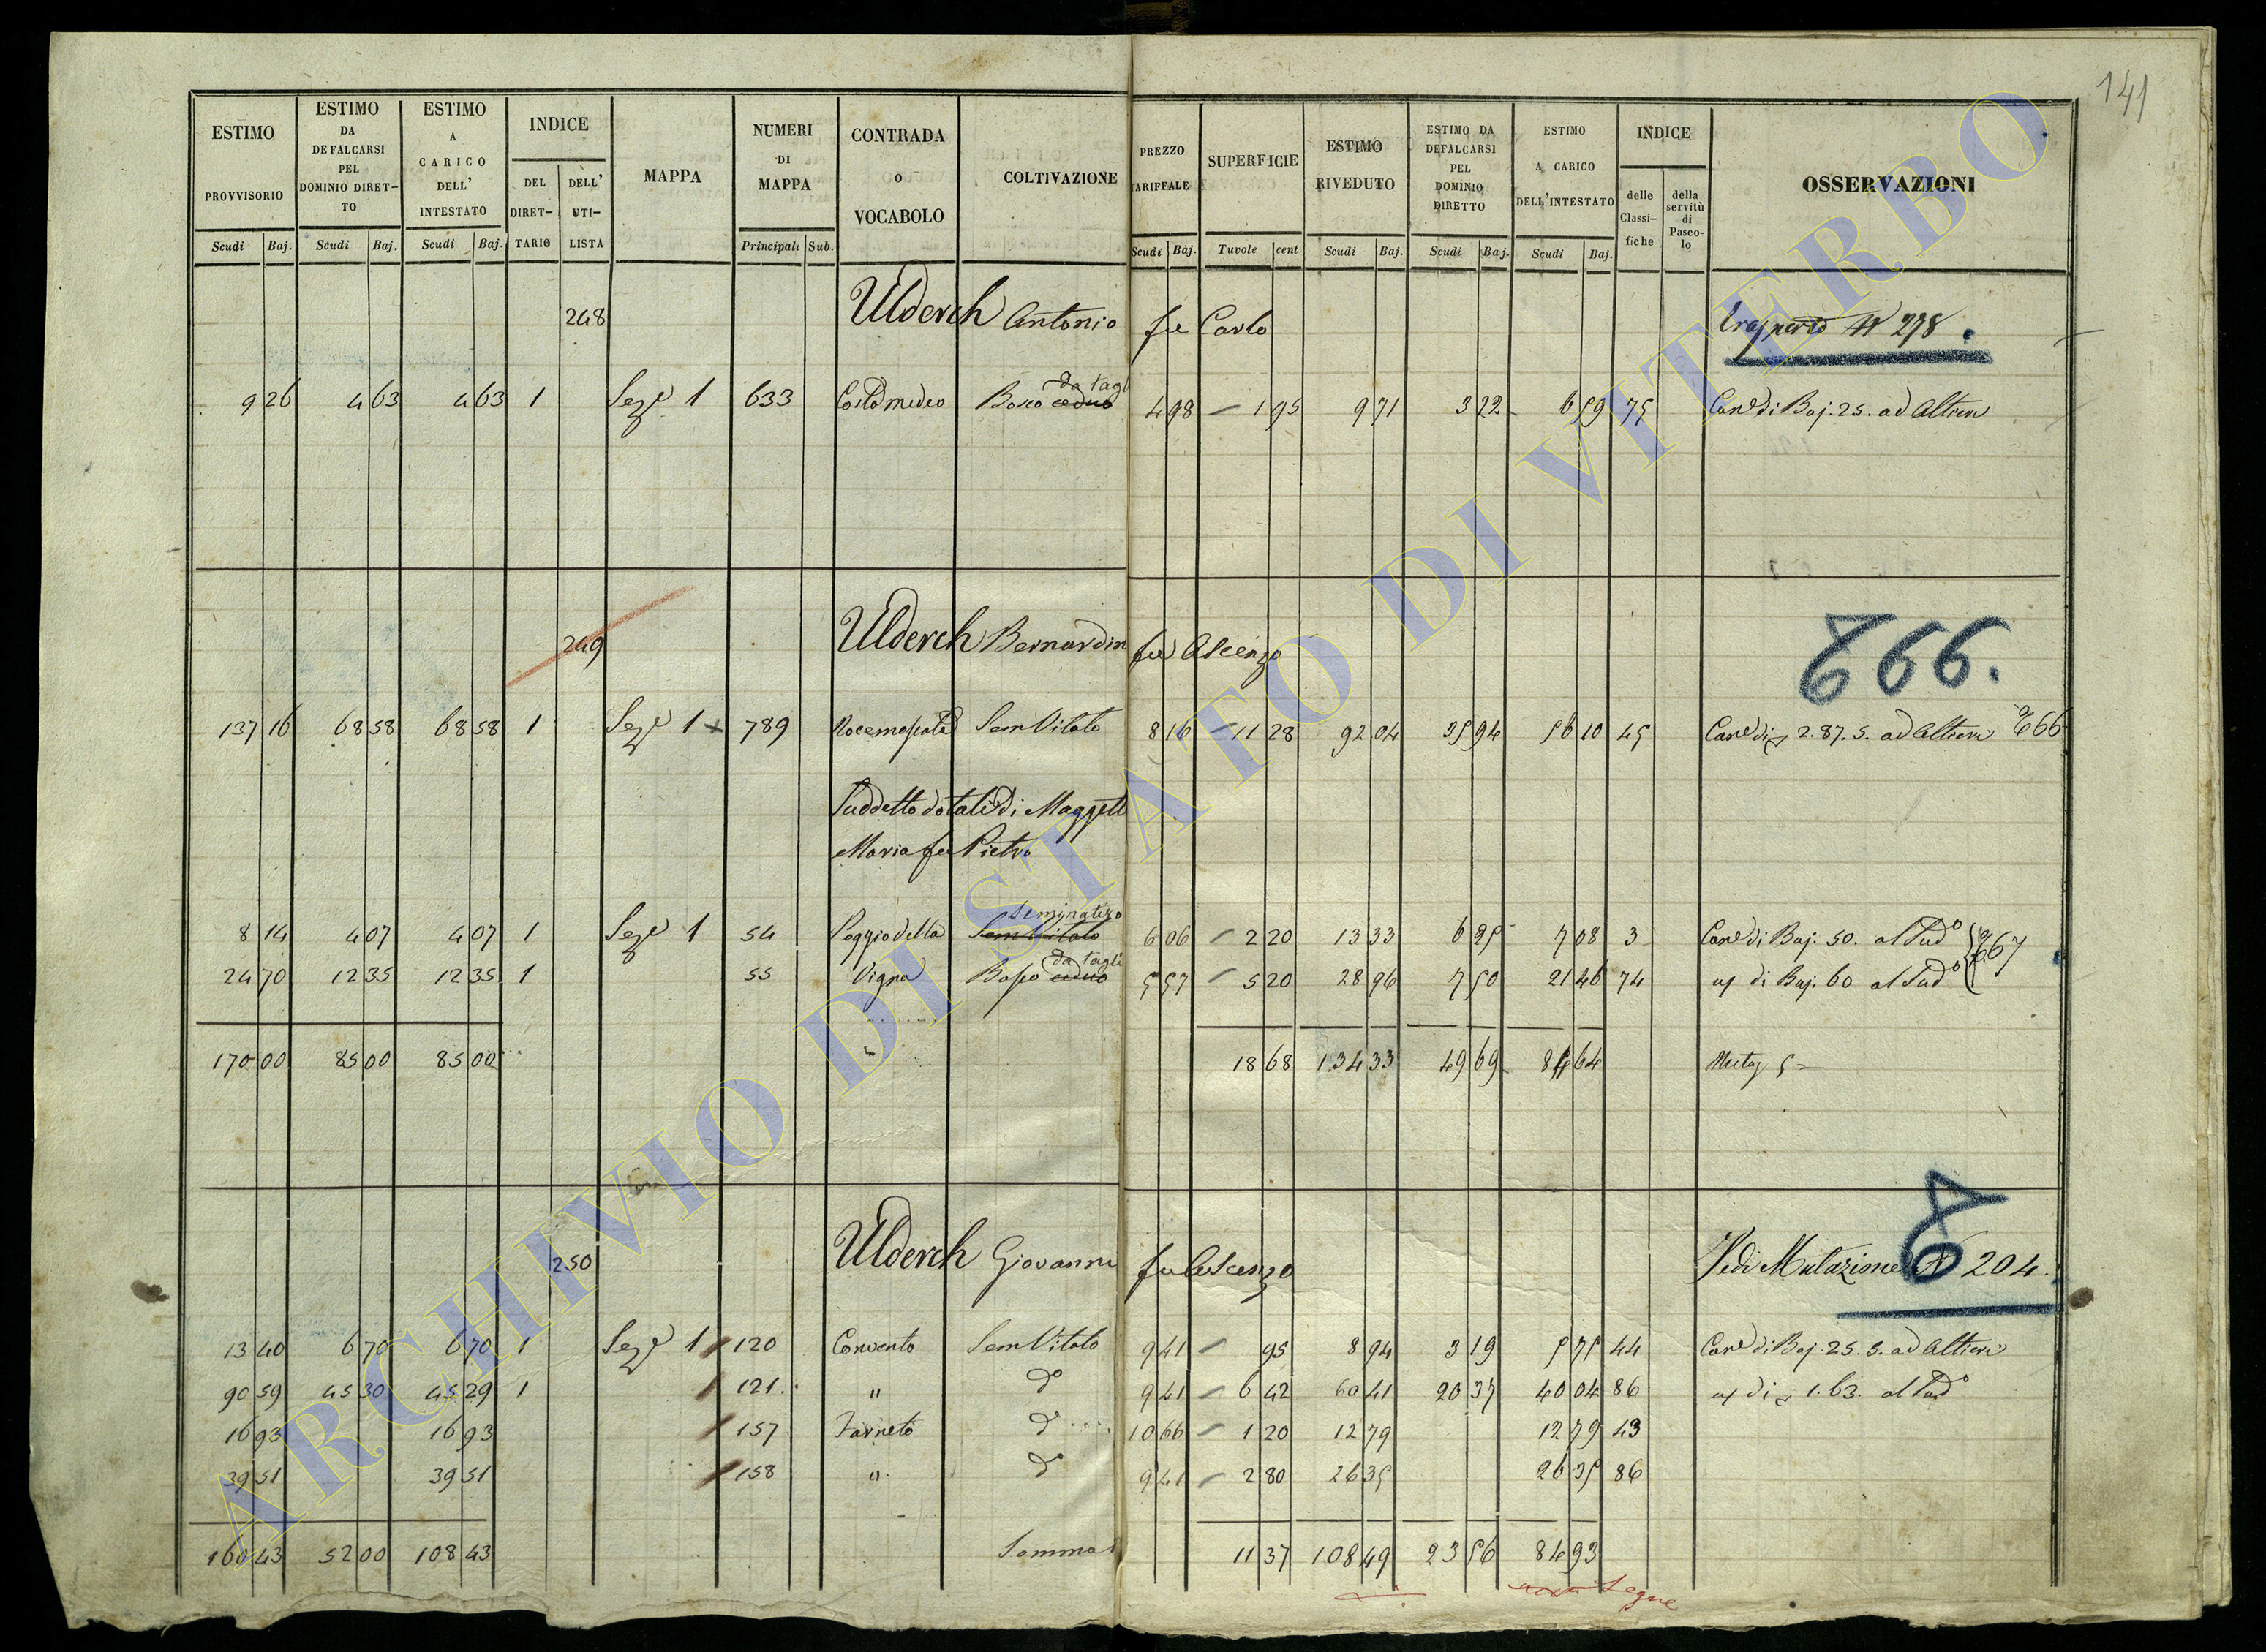 141
ESTIMO PROVVISORIO Scudi Baj.
ESTIMO DA DEFALCARSI PEL DOMINIO DIRETTO Scudi Baj.
ESTIMO A CARICO DELL' INTESTATO Scudi Baj.
INDICE DEL DIRETTARIO DELL' UTILISTA
MAPPA
NUMERI DI MAPPA Principali Sub.
CONTRADA O VOCABOLO
COLTIVAZIONE
PREZZO TARIFFALE Scudi Baj.
SUPERFICIE Tavole cent
ESTIMO RIVEDUTO Scudi Baj.
ESTIMO DA DEFALCARSI PEL DOMINIO DIRETTO Scudi Baj.
ESTIMO A CARICO DELL'INTESTATO Scudi Baj.
INDICE delle Classifiche della servitù di Pascolo
OSSERVAZIONI
248 Ulderch Antonio fu Carlo N 278
9 26 4 63 4 63 1 Sez.e 1 633 Bosco ceduo da tagl 4 98 1 95 9 71 3 22 6 59 75 Can.e di Baj. 25. ad Altieri
249 Ulderch Bernardin fu Ascenzo 666.
137 16 68 58 68 58 1 Sez.e 1 789 Sem Vitato 8 16 11 28 92 04 35 94 56 10 45 Can.e di 2. 87. 5. ad Altieri 666
Suddetto dotali di Maggett
Maria fu Pietro
8 14 4 07 4 07 1 Sez.e 1 54 Poggio della Sem Vitato Seminativo 6 06 2 20 13 33 6 25 7 08 3 Can.e di Baj. 50. al Sud.o 667
24 70 12 35 12 35 1 55 Vigna Bosco ceduo da tagli 5 57 5 20 28 96 7 50 21 46 74 di Baj. 60 al Sud.o
170 00 85 00 85 00 18 68 134 33 49 69 84 64
250 Ulderch Giovanni fu Ascenzo Vedi Mutazione N 204.
13 40 6 70 6 70 1 Sez.e 1 120 Convento Sem Vitato 9 41 95 8 94 3 19 5 75 44 Can.e di Baj. 25. 5. ad Altieri
90 59 45 30 45 29 1 121 " d.o 9 41 6 42 60 41 20 37 40 04 86 di 1. 63. al Sud.o
16 93 16 93 157 Farneto d.o 10 66 1 20 12 79 12 79 43
39 51 39 51 158 " d.o 9 41 2 80 26 35 26 35 86
160 43 52 00 108 43 Somma 11 37 108 49 23 56 84 93
Segue
ARCHIVIO DI STATO DI VITERBO